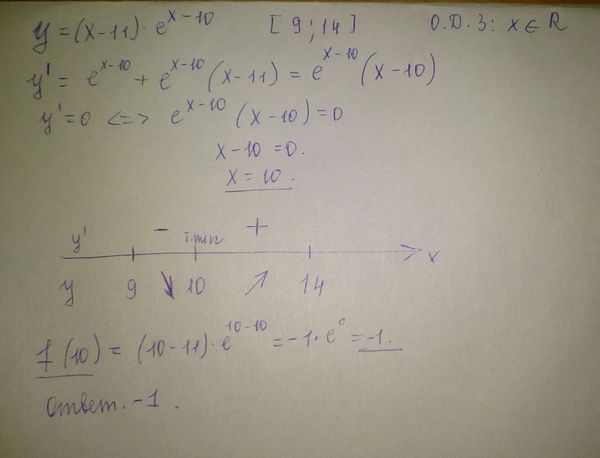 y = (x-11) · e^{x-10} [9; 14] О.Д.З: x ∈ R
y' = e^{x-10} + e^{x-10} (x-11) = e^{x-10} (x-10)
y' = 0 <=> e^{x-10} (x-10) = 0
x-10 = 0.
x = 10.
y' - т.min +
x
y 9 ↘ 10 ↗ 14
f(10) = (10-11) · e^{10-10} = -1 · e^0 = -1.
Ответ. -1.